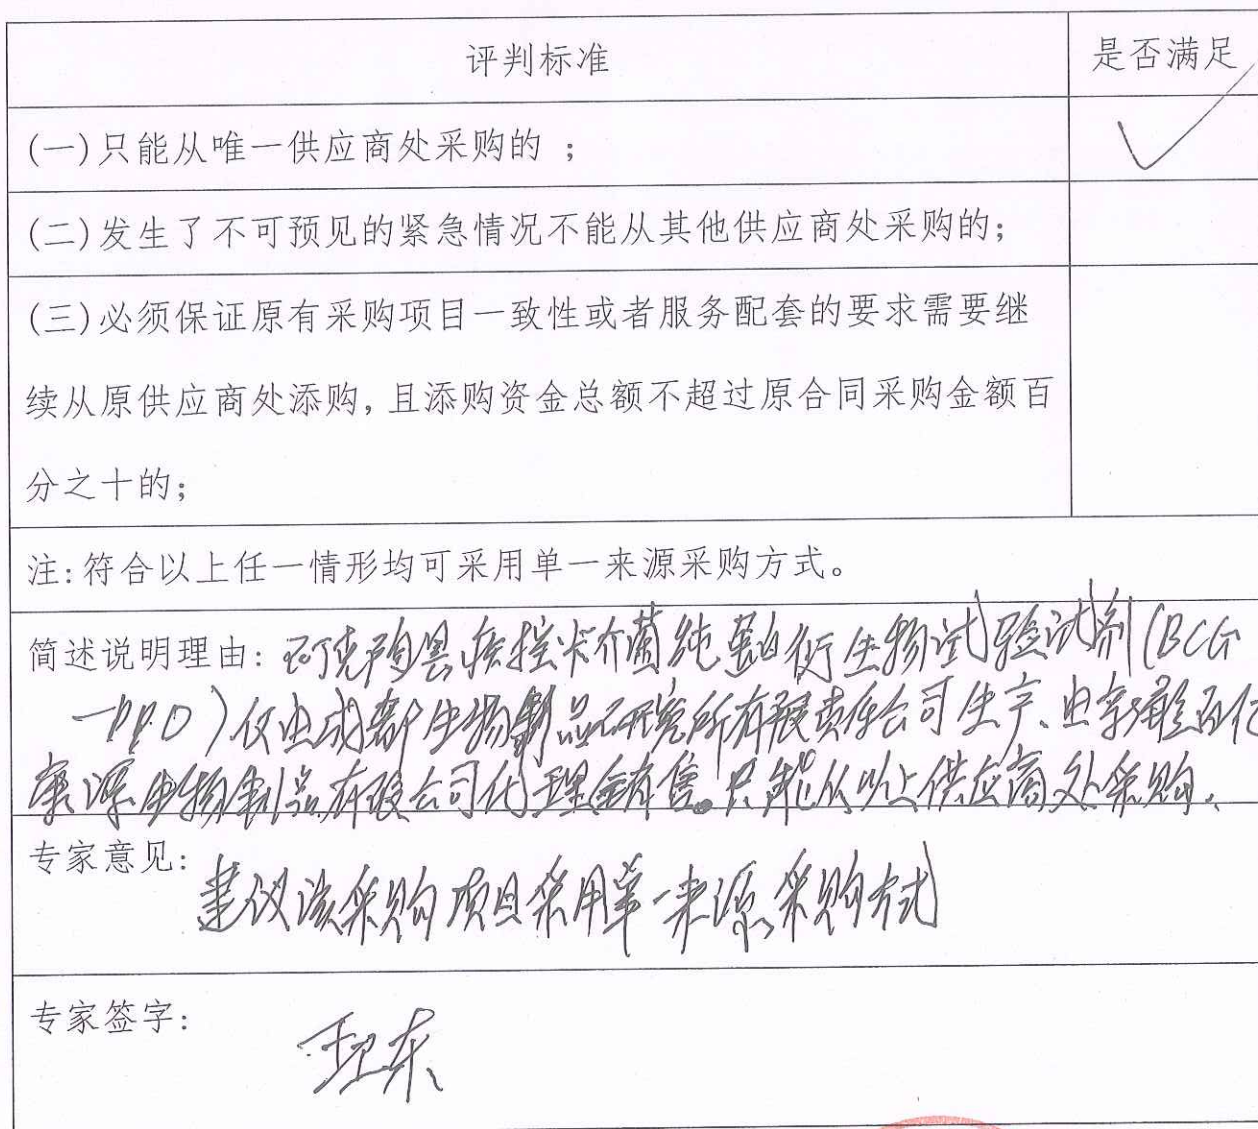 评判标准 是否满足
(一)只能从唯一供应商处采购的 ; ✓
(二)发生了不可预见的紧急情况不能从其他供应商处采购的;
(三)必须保证原有采购项目一致性或者服务配套的要求需要继
续从原供应商处添购,且添购资金总额不超过原合同采购金额百
分之十的;
注:符合以上任一情形均可采用单一来源采购方式。
简述说明理由: 阿克陶县疾控卡介菌纯蛋白衍生物试验试剂(BCG
-PPD)仅由成都生物制品研究所有限责任公司生产、由新疆
生物制品有限公司代理销售。只能从以上供应商处采购。
专家意见: 建议该采购项目采用单一来源采购方式
专家签字: